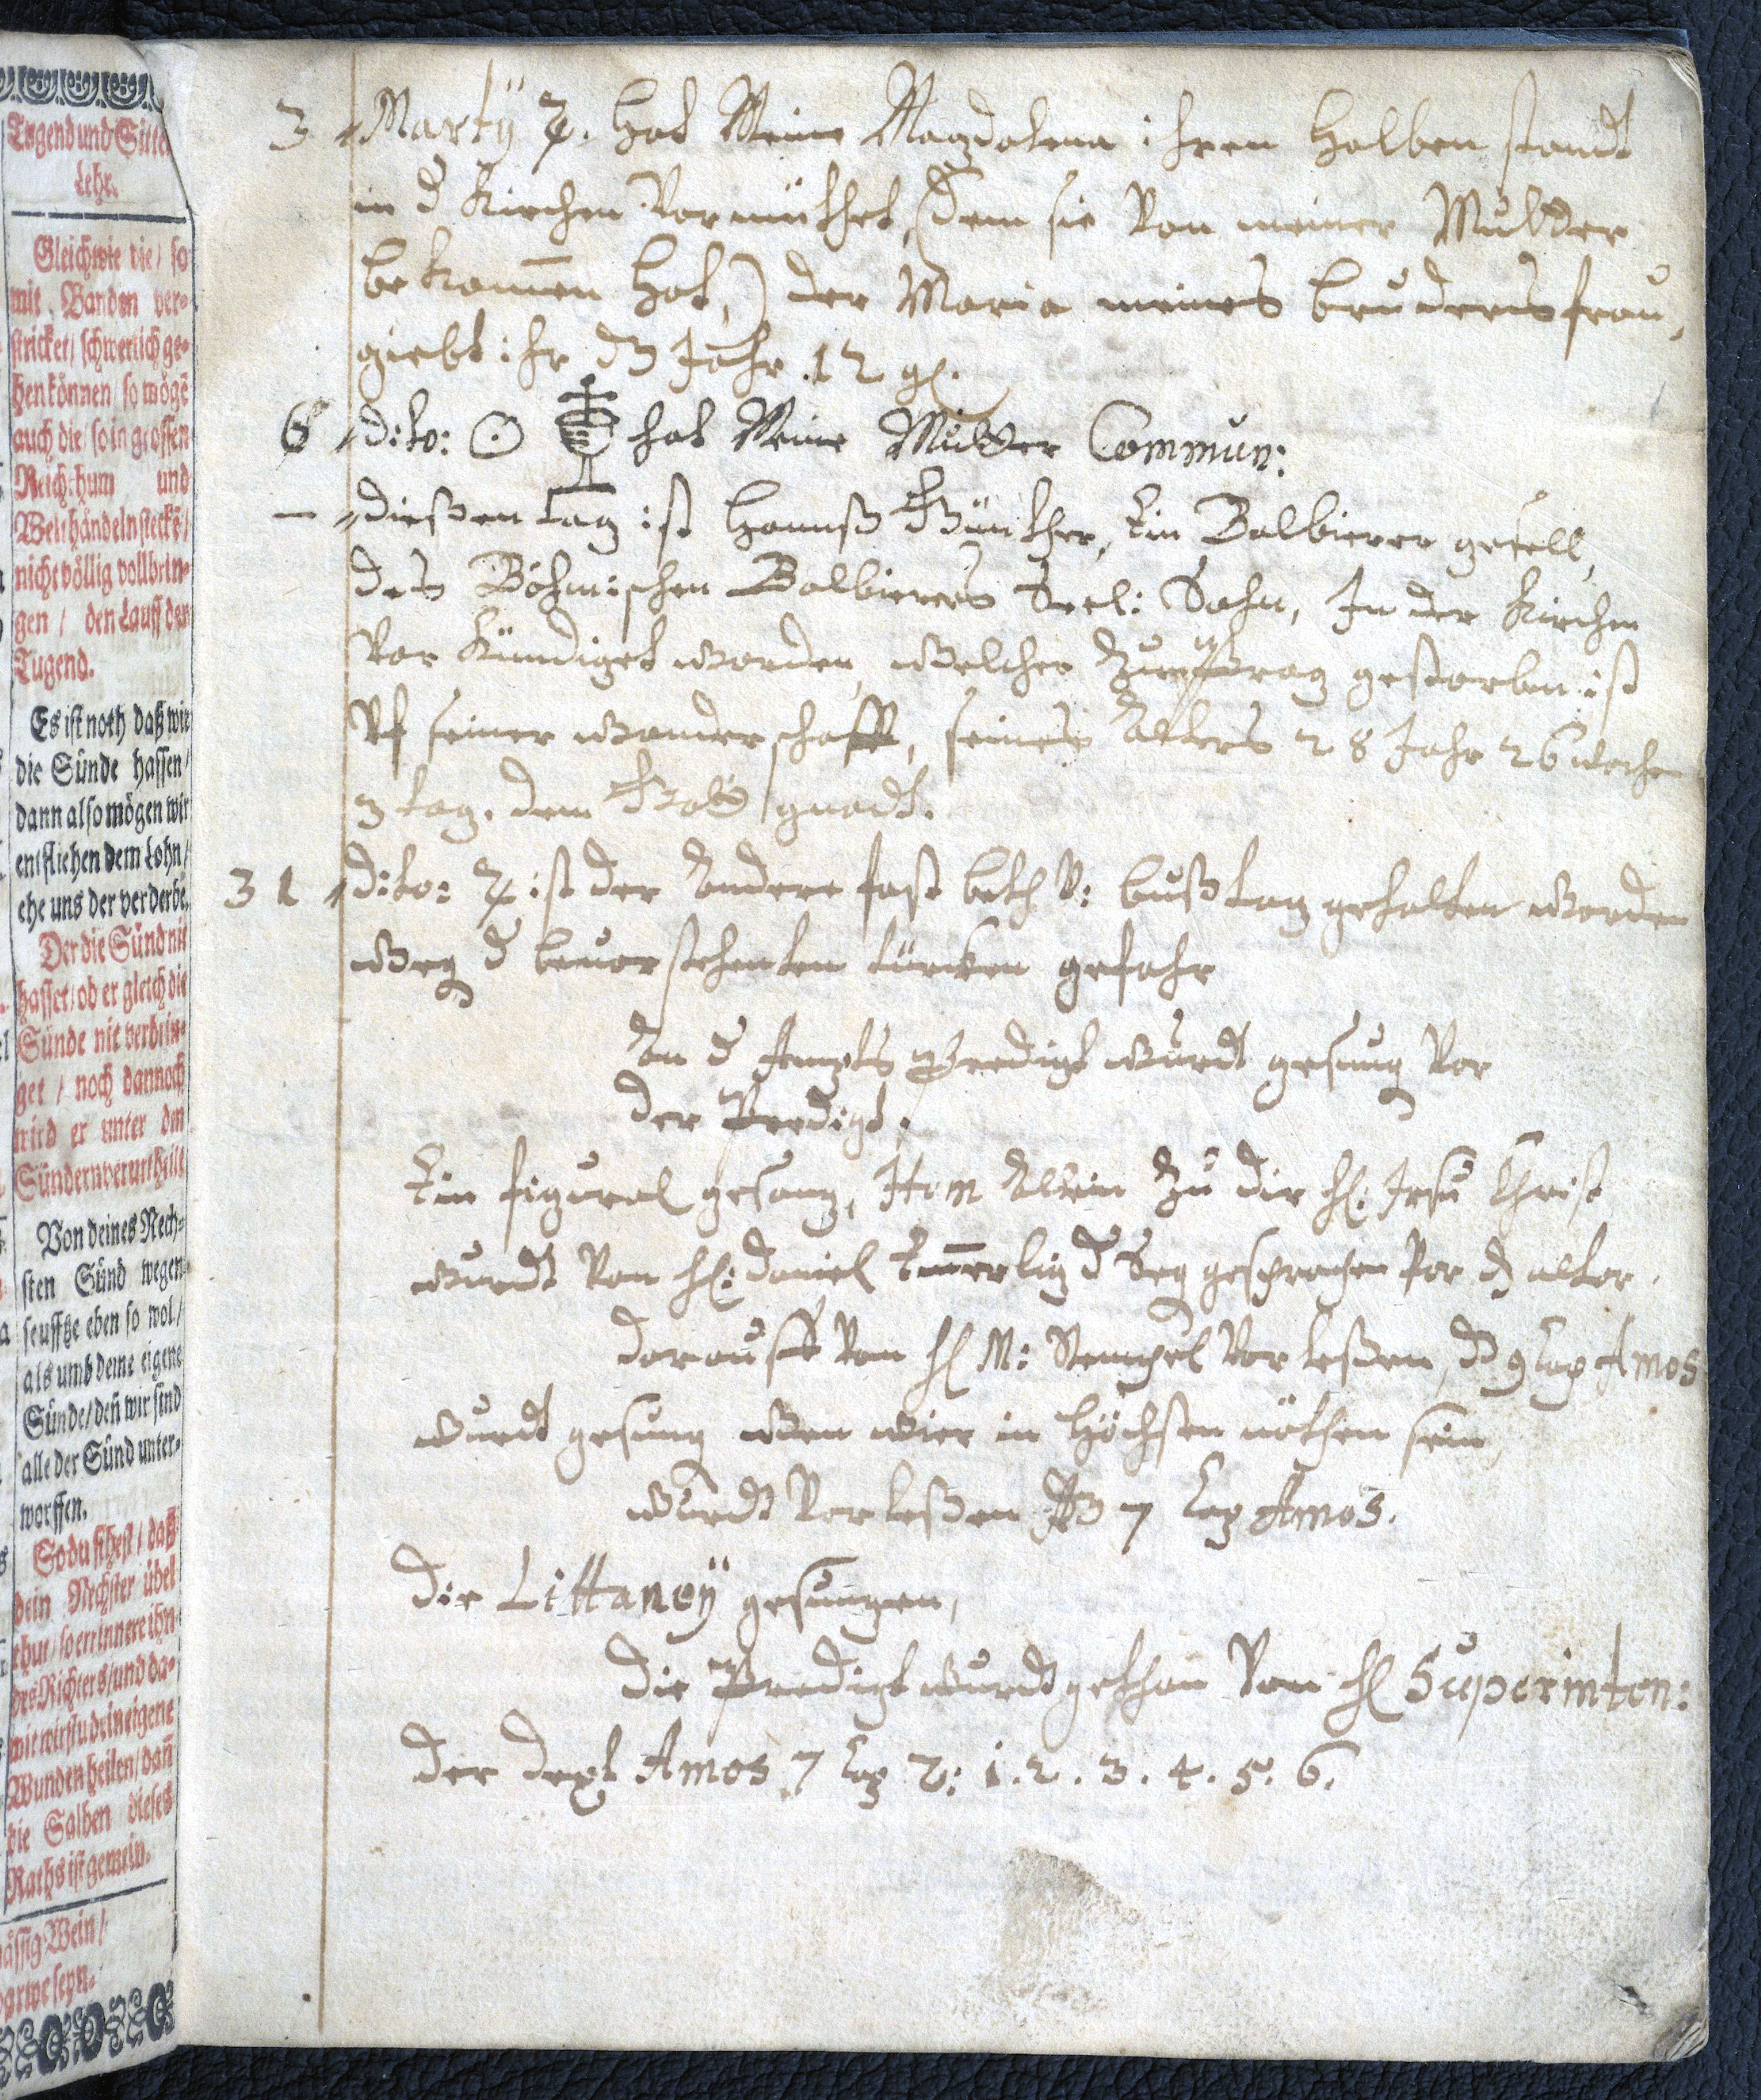 Tugend und Sitte
Lehr.
Gleichwie die / so
mit Banden ver-
stricket / schwerlich ge-
hen können / so mögē
auch die / so in grossen
Reichthum und
Welthändeln steckē /
nicht völlig vollbrin-
gen / den Lauff der
Tugend.
Es ist noth daß wir
die Sünde hassen /
dann also mögen wir
entfliehen dem Lohn /
ehe uns der verderbe.
Der die Sünd nit
hasset / ob er gleich die
Sünde nit verbrin-
get / noch dannoch
wird er unter den
Sündern verurtheilt
Von deines Nech-
sten Sünd wegen
seufftze eben so wol /
als umb deine eigene
Sünde / deñ wir sind
alle der Sünd unter-
worffen.
So du sihest / daß
dein Nechster übel
thut / so errinnere ihn
des Richters / und da-
mit wirstu dein eigene
Wunden heilen / dañ
die Salben dieses
Raths ist gemein.
mässig Wein /
3 Martÿ ♃. hat Meine Magdalena ihren halben standt
in d Kirchen Vormüthet, (dem sie Von meiner Mutter
bekom̄en hat,) der Maria meines bruders frau,
giebt ihr dz Jahr 12 gl.
6 dito: ☉ hat Meine Mutter Commun:
– dießen tag ist Hannß Günther, Ein Balbierer gesell,
des Böhmischen Balbierers Seel: Sohn, In der Kirchen
Vor Kündiget worden, welcher zu Prag gestorben ist
Vf seiner wanderschafft, seines Alters 28 Jahr 26 wochen
3 tag. dem Gott gnadt.
31 dito: ♃ ist der Andere fast beth V: bußtag gehalten worden
weg d beuorstehenten türcken gefahr
An d Ampts Predigt wurdt gesung Vor
der Predigt.
Ein figural gesang, Item Allein Zu dir H: Jesu Christ
wurdt Von H: Daniel d Seg gesprochen Vor dz altar.
darauff Von H M: Stempel Vorleßen, dz 9 Cap Amos
wurdt gesung wen wier in Höchsten nöthen sein,
wurdt Vorleßen dz 7 Cap Amos.
die Littaneÿ gesungen,
die Predigt wurdt gethan Von H Superinten:
der Dext Amos 7 Cap V: 1. 2. 3. 4. 5. 6.